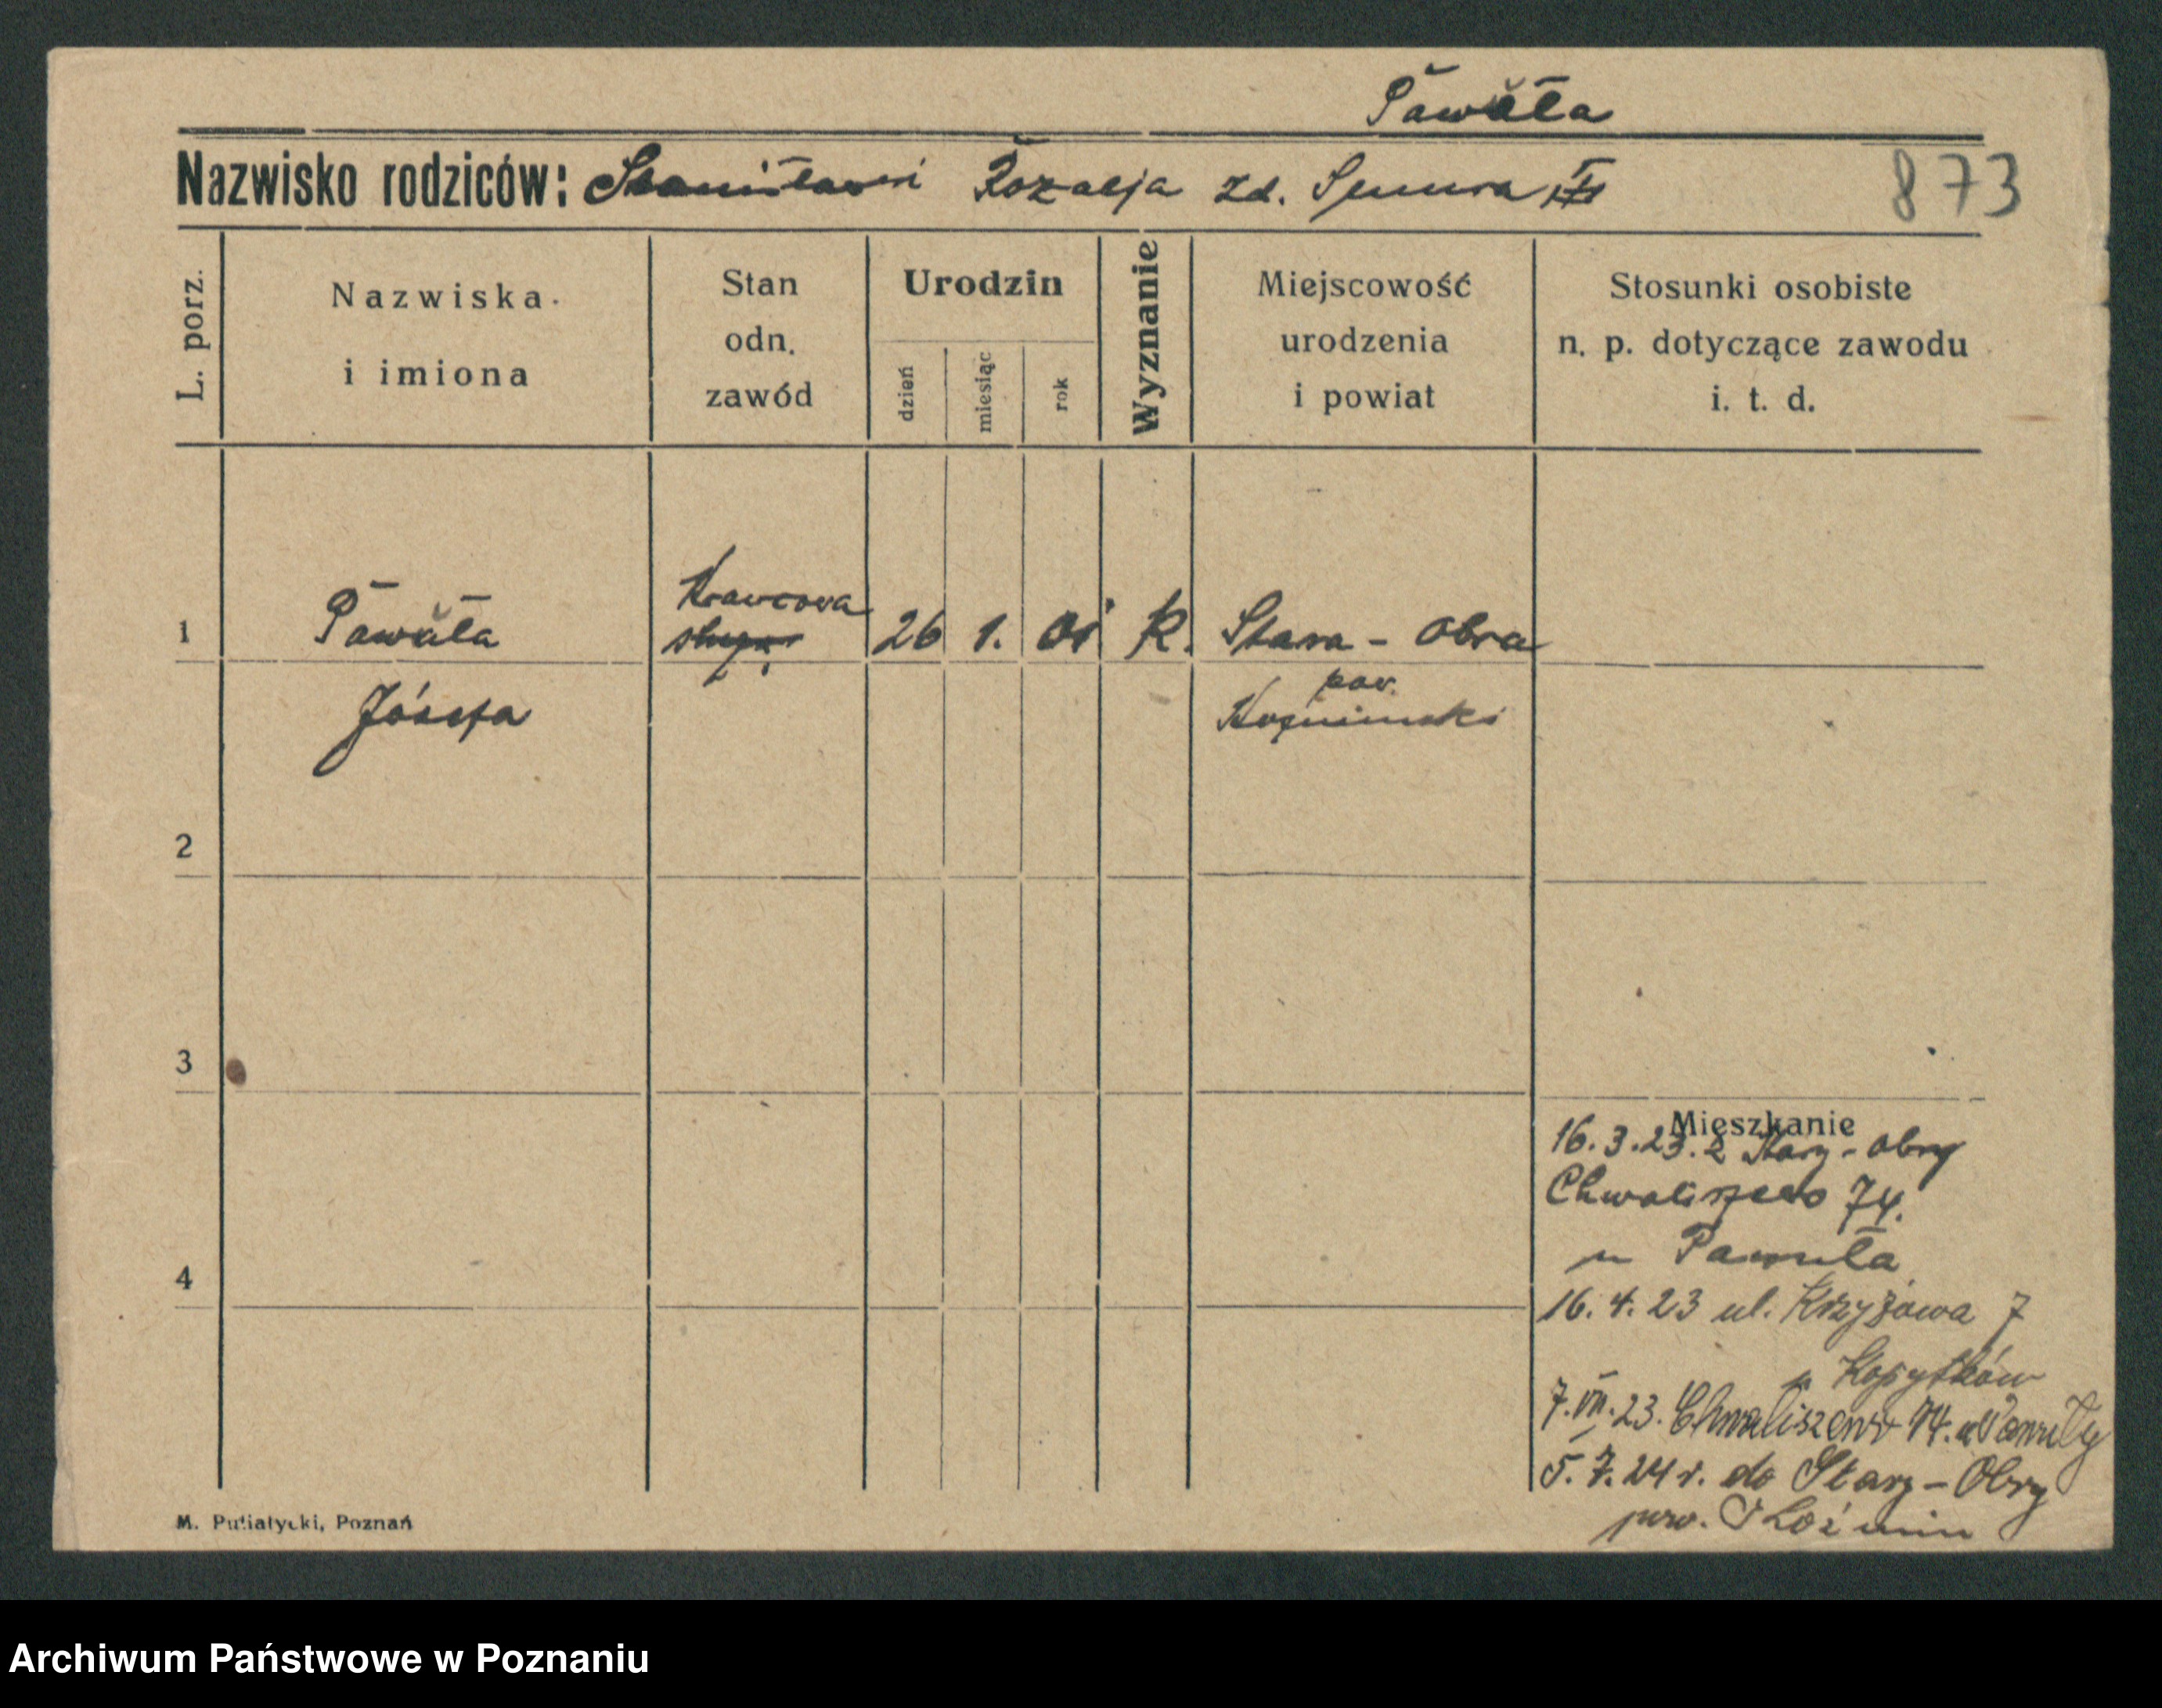 Pawuła
Nazwisko rodziców: Stanisław i Rozalja zd.
873
L. porz.
Nazwiska
i imiona
Stan
odn.
zawód
Urodzin
dzień
miesiąc
rok
Wyznanie
Miejscowość
urodzenia
i powiat
Stosunki osobiste
n. p. dotyczące zawodu
i. t. d.
Krawcowa
1 Pawuła 26 1. 01 K. Stara - Obra
pow.
Józefa Koźmiński
2
3
Mieszkanie
16.3.23. z Stary - Obry
Chwaliszewo 74.
u Pawuła
4
16.4.23 ul. Krzyżowa 7
u Kopytków
7.VII.23. Chwaliszewo 74. u Pawuły
5.7.24 r. do Stary - Obry
pow. Koźmin
M. Putiatycki, Poznań
Archiwum Państwowe w Poznaniu